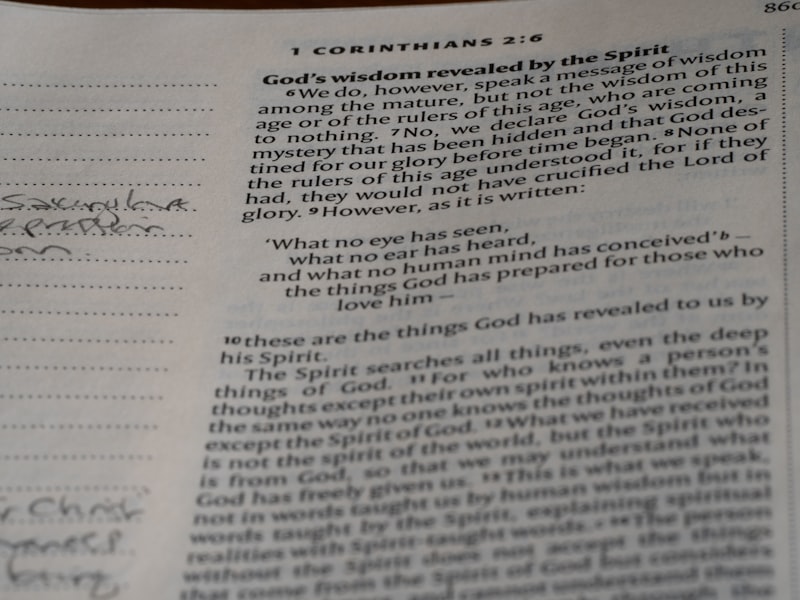 860
1 CORINTHIANS 2:6
God's wisdom revealed by the Spirit
6 We do, however, speak a message of wisdom
among the mature, but not the wisdom of this
age or of the rulers of this age, who are coming
to nothing. 7 No, we declare God's wisdom, a
mystery that has been hidden and that God des-
tined for our glory before time began. 8 None of
the rulers of this age understood it, for if they
had, they would not have crucified the Lord of
glory. 9 However, as it is written:
'What no eye has seen,
what no ear has heard,
and what no human mind has conceived' b —
the things God has prepared for those who
love him —
10 these are the things God has revealed to us by
his Spirit.
The Spirit searches all things, even the deep
things of God. 11 For who knows a person's
thoughts except their own spirit within them? In
the same way no one knows the thoughts of God
except the Spirit of God. 12 What we have received
is not the spirit of the world, but the Spirit who
is from God, so that we may understand what
God has freely given us. 13 This is what we speak,
not in words taught us by human wisdom but in
words taught by the Spirit, explaining spiritual
realities with Spirit-taught words. c 14 The person
without the Spirit does not accept the things
that come from the Spirit of God but considers
Christ